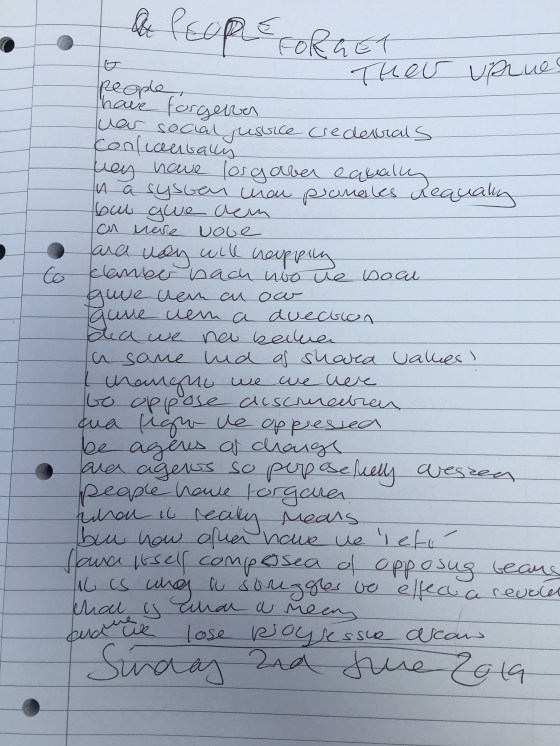 PEOPLE FORGET
THEIR VALUES
people,
have forgotten
their social justice credentials
conveniently
they have forgotten equality
in a system that promotes inequality
but give them
on vote
and they will happily
clamber back into the boat
give them an oar
give them a direction
did we not believe
in some kind of shared values?
I thought we were here
to oppose discrimination
and fight the oppressed
be agents of change
and agents so purposefully dressed
people have forgotten
what it really means
but how often have the 'left'
found itself composed of opposing teams
it is why it struggles to effect a
that is what it means
and we lose progressive dreams
Sunday 2nd June 2019